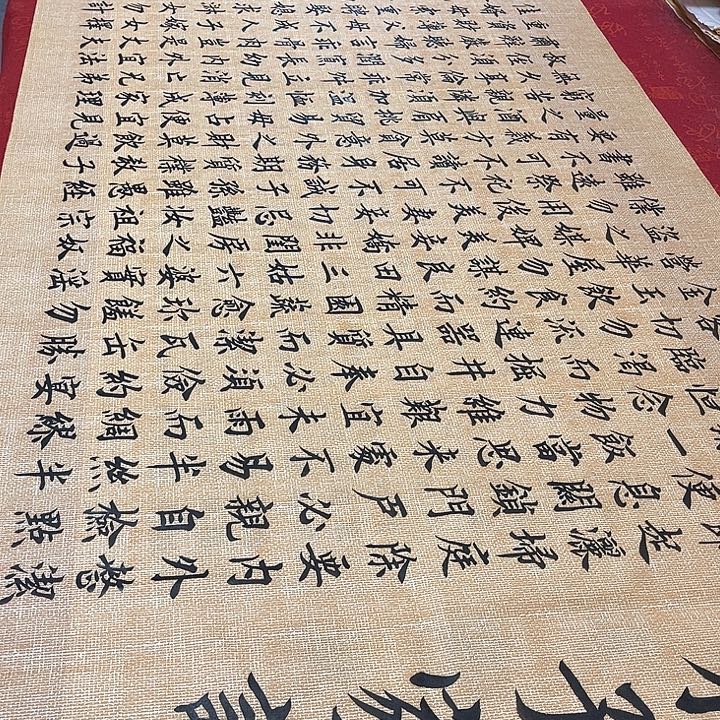 子家訓
即起灑掃庭除要內外整潔
便息關鎖門戶必親自檢點
一飯當思來處不易半絲半
恒念物力維艱宜未雨而綢繆
臨渴而掘井自奉必須儉約宴
客切勿流連器具質而潔瓦缶勝
金玉飲食約而精園蔬愈珍饈勿
營華屋勿謀良田三姑六婆實淫
盜之媒婢美妾嬌非閨房之福奴
僕勿用俊美妻妾切忌豔妝祖宗
雖遠祭祀不可不誠子孫雖愚經
書不可不讀居身務期質樸教子
要有義方莫貪意外之財莫飲過
量之酒與肩挑貿易毋占便宜見
窮苦親鄰須加溫恤刻薄成家理
無久享倫常乖舛立見消亡兄弟
叔姪須分多潤寡長幼內外宜法
肅辭嚴聽婦言乖骨肉豈是丈夫
重資財薄父母不成人子嫁女擇
佳婿毋索重聘娶媳求淑女勿計